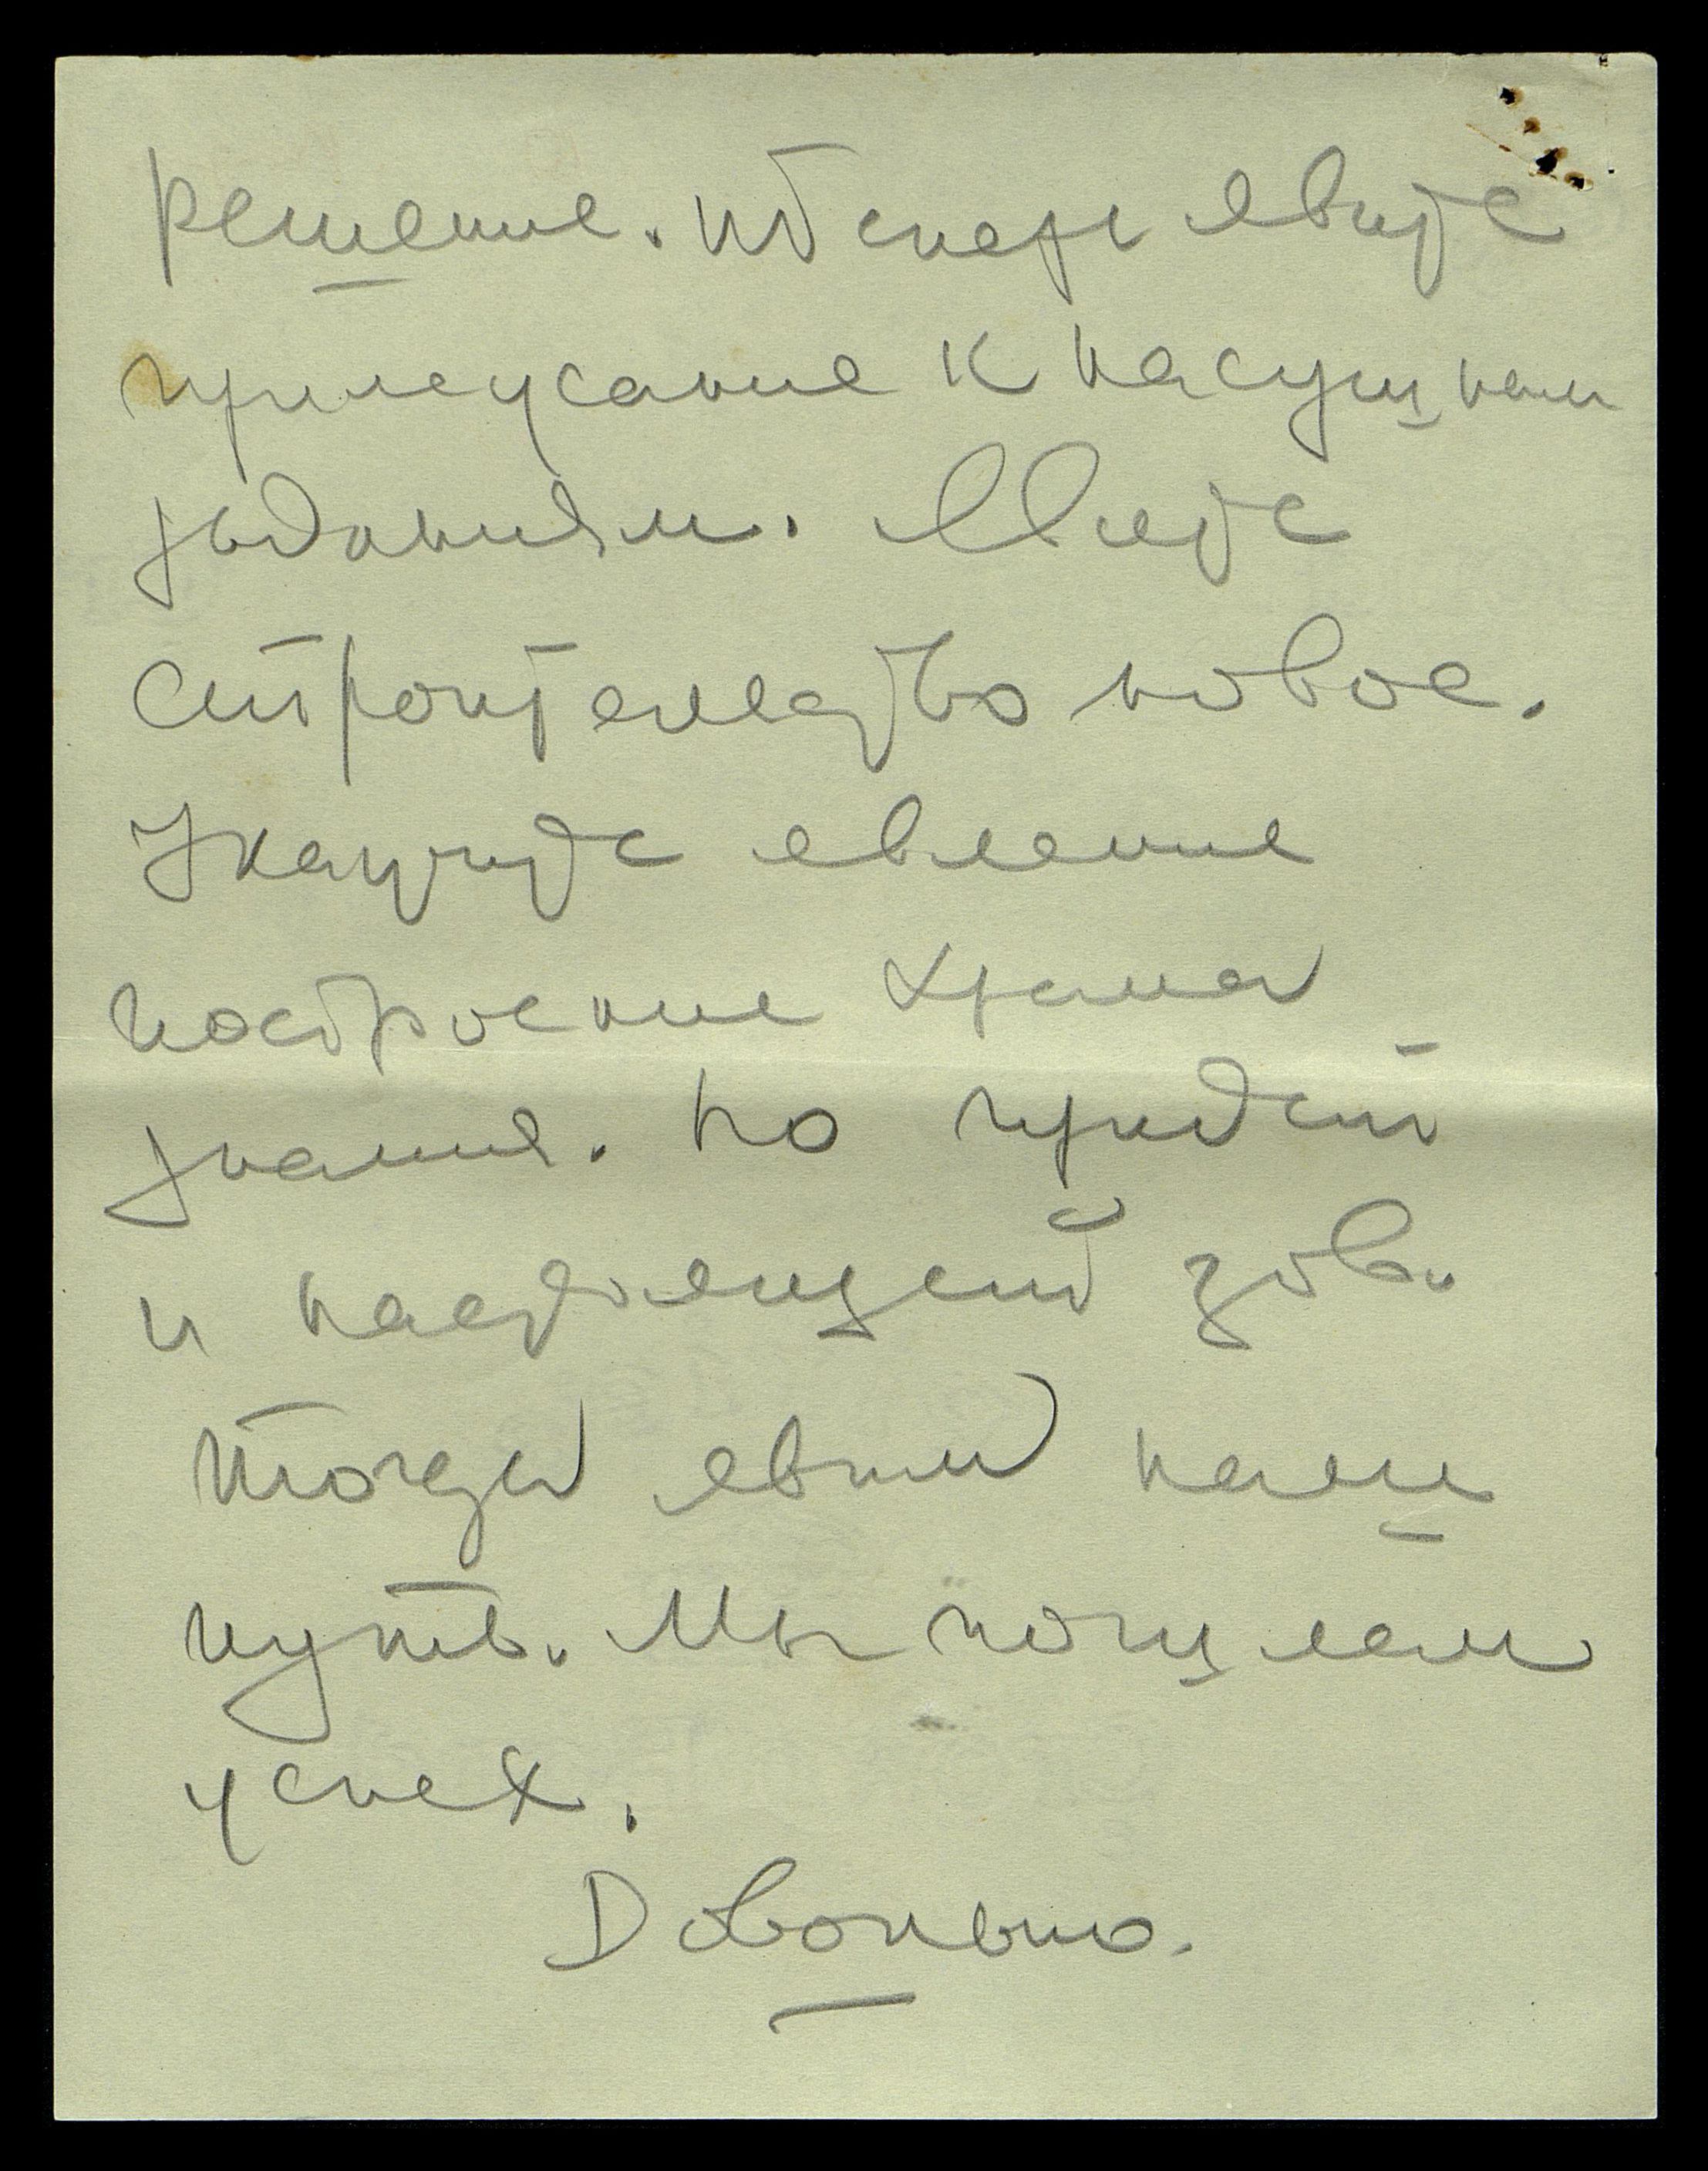 решение. Теперь явите
примеусание к насущным
заданиям. Явите
строительство новое.
Укажите явление
построение храма
знания. Но придет
и настоящей зов.
Тогда явим наш
путь. Мы пошлем
успех.
Довольно.